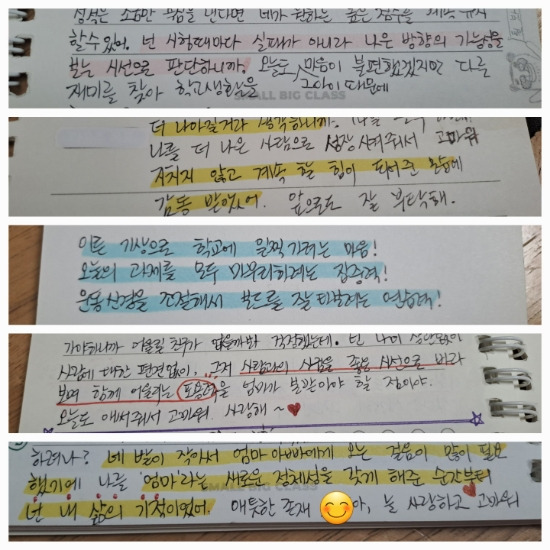 성적은 조금만 욕심을 낸다면 네가 원하는 높은 점수를 계속 유지
할수있어. 넌 시험때마다 실패가 아니라 나은 방향의 가능성을
보는 시선으로 판단하니까. 오늘도 마음이 불편했겠지만 다른
재미를 찾아 학교생활을 그아이 때문에
SMALL BIG CLASS
더 나아질거라 생각하니까.
나를 더 나은 사람으로 성장시켜줘서 고마워
지치지 않고 계속 할 힘이 되어준 모습에
감동 받았어. 앞으로도 잘 부탁해.
이른 기상으로 학교에 일찍 가려는 마음!
오늘의 과제를 모두 마무리하려는 집중력!
운동신경을 조절해서 보드를 잘 타보려는 연습력!
가야하니까 어울릴 친구가 없을까봐 걱정했는데. 넌 나이 상관없이
사람에 대한 편견없이, 그저 사람과의 사람을 좋은 시선으로 바라
보며 함께 어울리는 포용력을 엄마가 본받아야 할 점이야.
오늘도 애써줘서 고마워. 사랑해~
하려나? 네 발이 작아서 엄마 아빠에게 오는 걸음이 많이 필요
했기에 나를 '엄마'라는 새로운 정체성을 갖게 해준 순간부터
SMALL BIG CLASS
넌 내 삶의 기적이었어. 애틋한 존재 아, 늘 사랑하고 고마워